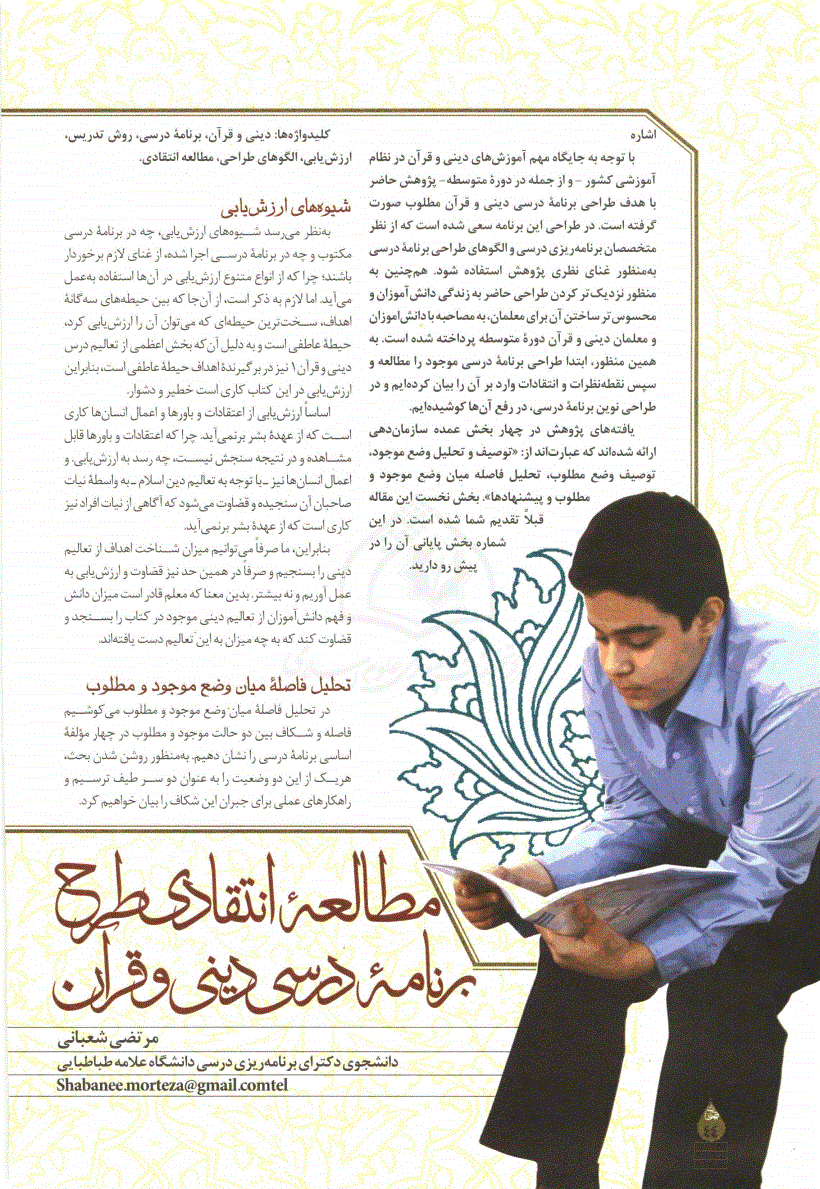 اشاره
با توجه به جایگاه مهم آموزش‌های دینی و قرآن در نظام
آموزشی کشور - و از جمله در دورهٔ متوسطه- پژوهش حاضر
با هدف طراحی برنامهٔ درسی دینی و قرآن مطلوب صورت
گرفته است. در طراحی این برنامه سعی شده است که از نظر
متخصصان برنامه‌ریزی درسی و الگوهای طراحی برنامهٔ درسی
به‌منظور غنای نظری پژوهش استفاده شود. هم‌چنین به
منظور نزدیک‌تر کردن طراحی حاضر به زندگی دانش‌آموزان و
محسوس‌تر ساختن آن برای معلمان، به مصاحبه با دانش‌آموزان
و معلمان دینی و قرآن دورهٔ متوسطه پرداخته شده است. به
همین منظور، ابتدا طراحی برنامهٔ درسی موجود را مطالعه و
سپس نقطه‌نظرات و انتقادات وارد بر آن را بیان کرده‌ایم و در
طراحی نوین برنامهٔ درسی، در رفع آن‌ها کوشیده‌ایم.
یافته‌های پژوهش در چهار بخش عمده سازمان‌دهی
ارائه شده‌اند که عبارت‌اند از: «توصیف و تحلیل وضع موجود،
توصیف وضع مطلوب، تحلیل فاصله میان وضع موجود و
مطلوب و پیشنهادها». بخش نخست این مقاله
قبلاً تقدیم شما شده است. در این
شماره بخش پایانی آن را در
پیش رو دارید.
کلیدواژه‌ها: دینی و قرآن، برنامهٔ درسی، روش تدریس،
ارزش‌یابی، الگوهای طراحی، مطالعه انتقادی.
شیوه‌های ارزش‌یابی
به‌نظر می‌رسد شیوه‌های ارزش‌یابی، چه در برنامهٔ درسی
مکتوب و چه در برنامهٔ درسی اجرا شده، از غنای لازم برخوردار
باشند؛ چرا که از انواع متنوع ارزش‌یابی در آن‌ها استفاده به‌عمل
می‌آید. اما لازم به ذکر است، از آن‌جا که بین حیطه‌های سه‌گانهٔ
اهداف، سخت‌ترین حیطه‌ای که می‌توان آن را ارزش‌یابی کرد،
حیطهٔ عاطفی است و به دلیل آن‌که بخش اعظمی از تعالیم درس
دینی و قرآن۱ نیز در برگیرندهٔ اهداف حیطهٔ عاطفی است، بنابراین
ارزش‌یابی در این کتاب کاری است خطیر و دشوار.
اساساً ارزش‌یابی از اعتقادات و باورها و اعمال انسان‌ها کاری
است که از عهدهٔ بشر برنمی‌آید. چرا که اعتقادات و باورها قابل
مشاهده و در نتیجه سنجش نیست، چه رسد به ارزش‌یابی. و
اعمال انسان‌ها نیز ـ با توجه به تعالیم دین اسلام ـ به واسطهٔ نیات
صاحبان آن سنجیده و قضاوت می‌شود که آگاهی از نیات افراد نیز
کاری است که از عهدهٔ بشر برنمی‌آید.
بنابراین، ما صرفاً می‌توانیم میزان شناخت اهداف از تعالیم
دینی را بسنجیم و صرفاً در همین حد نیز قضاوت و ارزش‌یابی به
عمل آوریم و نه بیشتر. بدین معنا که معلم قادر است میزان دانش
و فهم دانش‌آموزان از تعالیم دینی موجود در کتاب را بسنجد و
قضاوت کند که به چه میزان به این تعالیم دست یافته‌اند.
تحلیل فاصلهٔ میان وضع موجود و مطلوب
در تحلیل فاصلهٔ میان وضع موجود و مطلوب می‌کوشیم
فاصله و شکاف بین دو حالت موجود و مطلوب در چهار مؤلفهٔ
اساسی برنامهٔ درسی را نشان دهیم. به‌منظور روشن شدن بحث،
هریک از این دو وضعیت را به عنوان دو سر طیف ترسیم و
راهکارهای عملی برای جبران این شکاف را بیان خواهیم کرد.
مطالعهٔ انتقادی طرح
برنامهٔ درسی دینی و قرآن
مرتضی شعبانی
دانشجوی دکترای برنامه‌ریزی درسی دانشگاه علامه طباطبایی
Shabanee.morteza@gmail.comtel